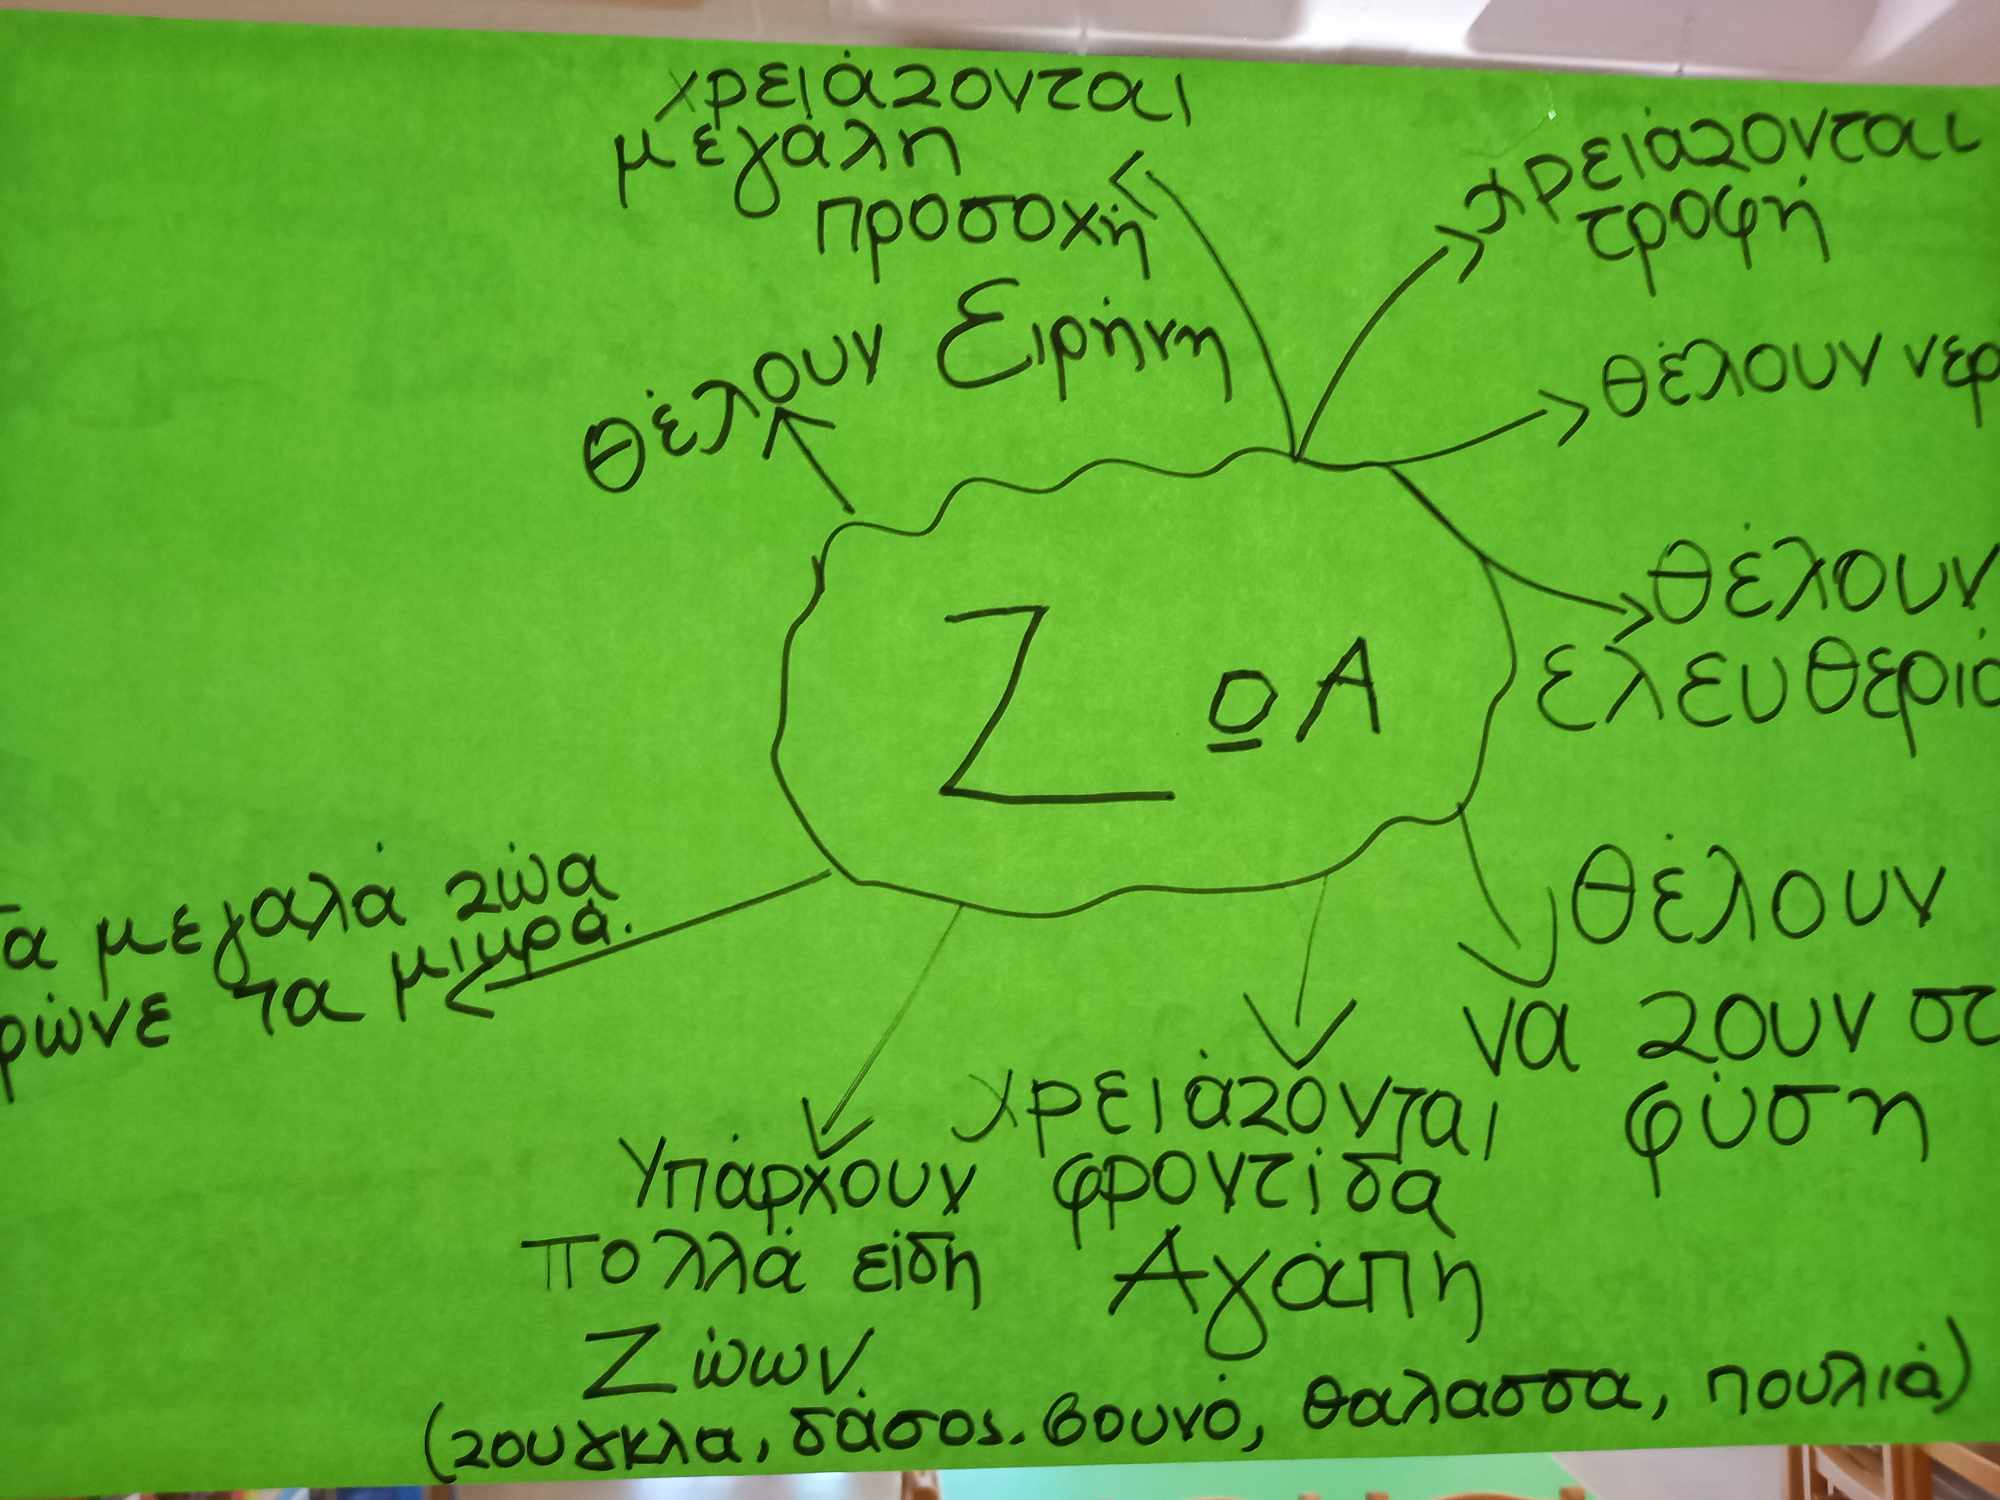 χρειάζονται
μεγάλη
προσοχή
χρειάζονται
τροφή
θέλουν Ειρήνη
θέλουν νερ
θέλουν
ελευθερία
ΖωΑ
Τα μεγαλά ζώα
ρώνε τα μικρά.
θέλουν
να ζουν στ
φύση
Υπάρχουν
πολλά είδη
Ζώων.
χρειάζονται
φροντίδα
Αγάπη
(ζουγκλα, δάσος. βουνό, θαλασσα, πουλιά)